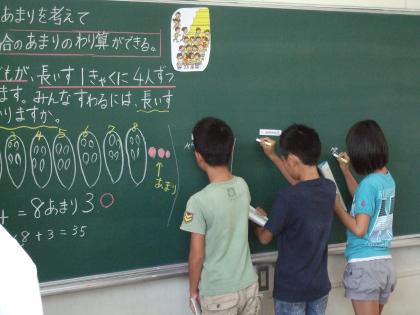 あまりを考えて
合のあまりのわり算ができる。
もが、長いす1きゃくに4人ずつ
ます。みんなすわるには、長いす
りますか。
4 5 6 7 8
あまり
= 8あまり3
8 + 3 = 35